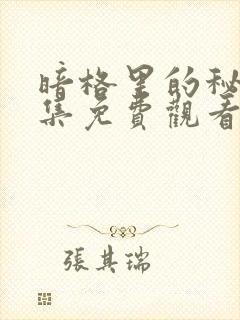 暗格里的秘
集免費觀看
張其瑞